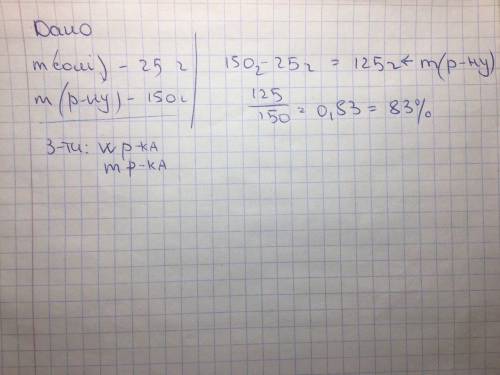 Дано
m(солі) - 25 г
m(р-ну) - 150г
З-ти: w р-ка
m р-ка
150г-25г = 125г ← m(р-ну)
125/150 = 0,83 = 83%